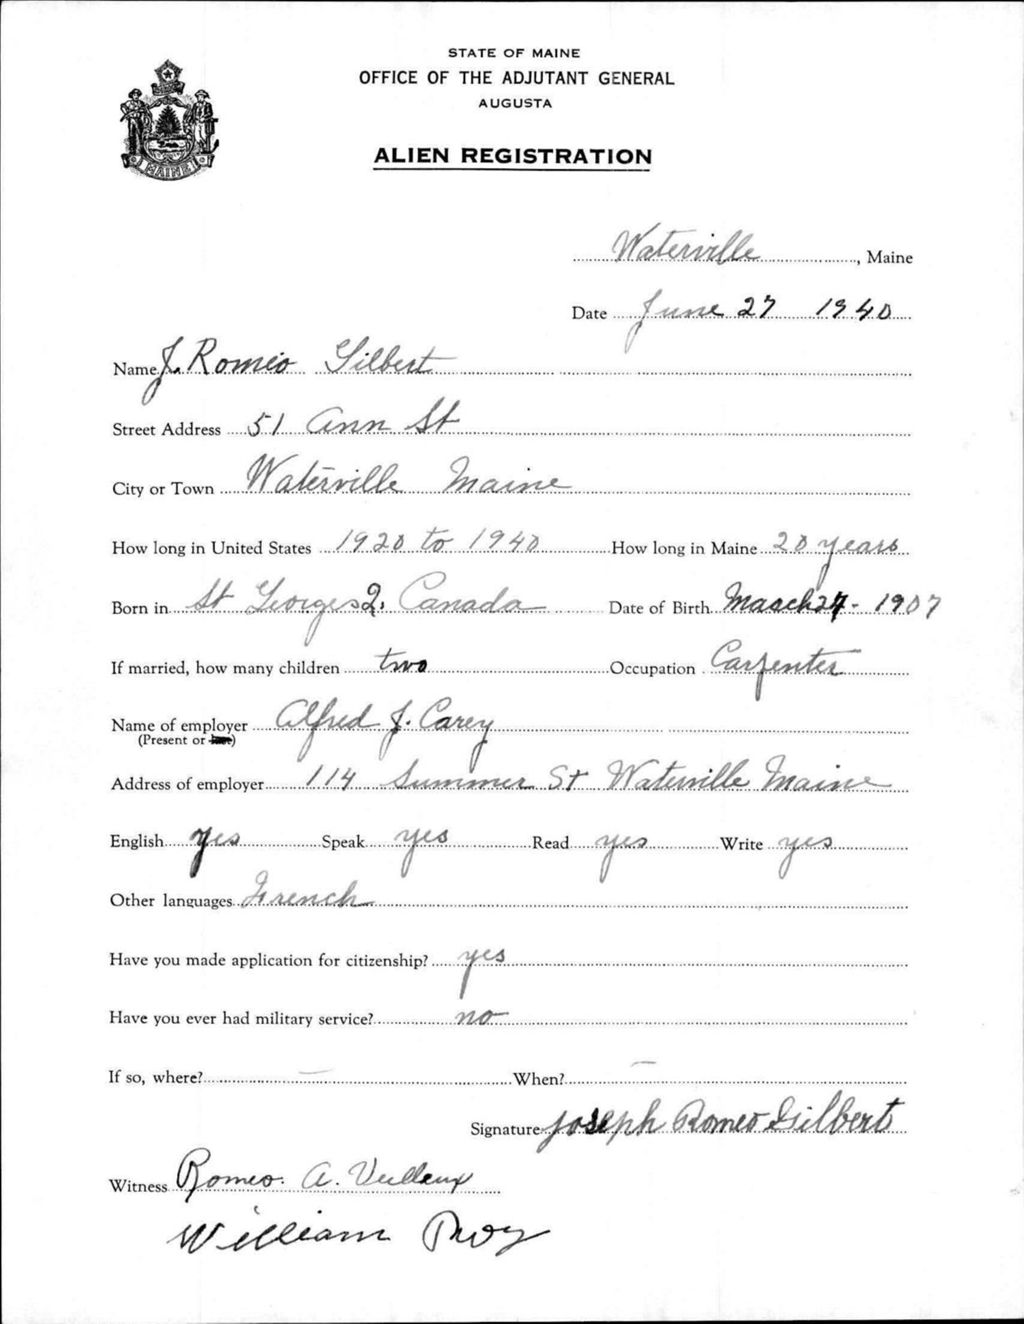 STATE OF MAINE
OFFICE OF THE ADJUTANT GENERAL
AUGUSTA
MAINE
ALIEN REGISTRATION
Waterville, Maine
Date June 27 1940
Name J. Romeo Gilbert
Street Address 51 Ann St
City or Town Waterville Maine
How long in United States 1920 to 1940 How long in Maine 20 years
Born in St Georges Q. Canada Date of Birth March 24 - 1907
If married, how many children two Occupation Carpenter
Name of employer Alfred J. Carey
(Present or last)
Address of employer 114 Summer St Waterville Maine
English yes Speak yes Read yes Write yes
Other languages French
Have you made application for citizenship? yes
Have you ever had military service? no
If so, where? — When? —
Signature Joseph Romeo Gilbert
Witness Romeo A. Veilleux
William Roy